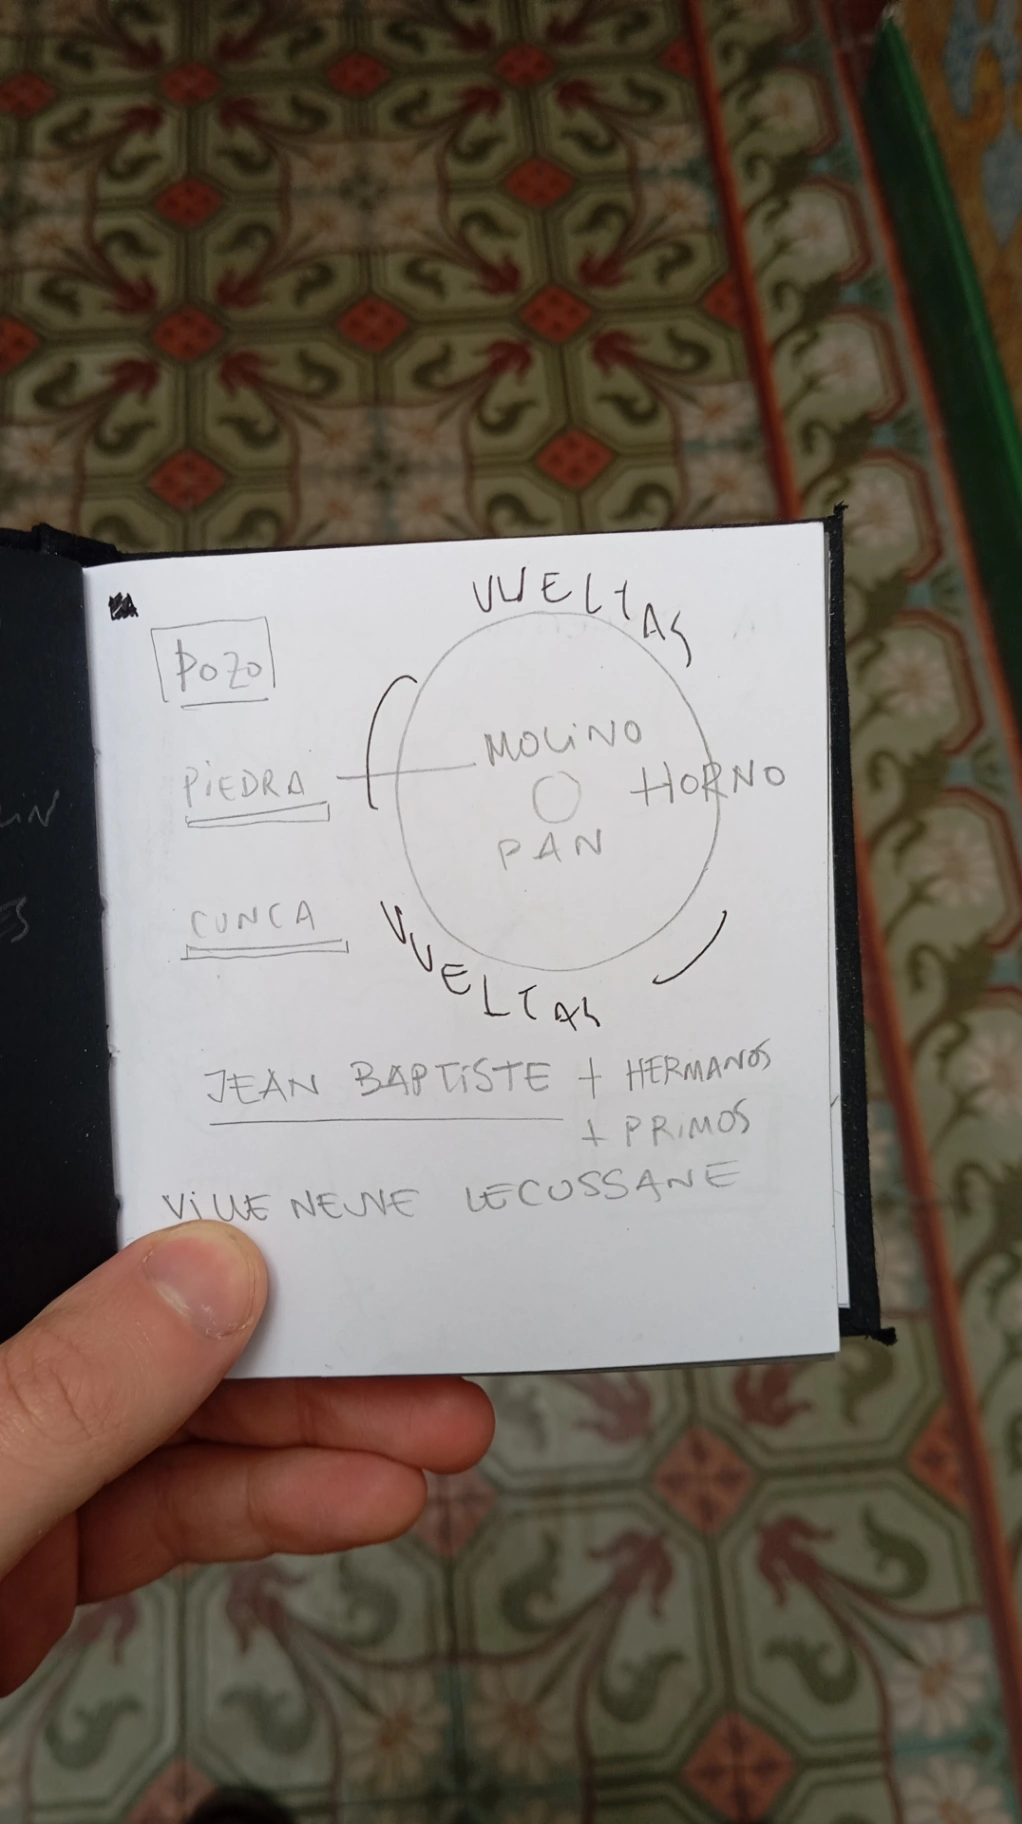 VUELTAS
POZO
MOLINO
PIEDRA
HORNO
PAN
CUNCA
VUELTAS
JEAN BAPTISTE + HERMANOS
+ PRIMOS
VILLE NEUVE LECUSSANE